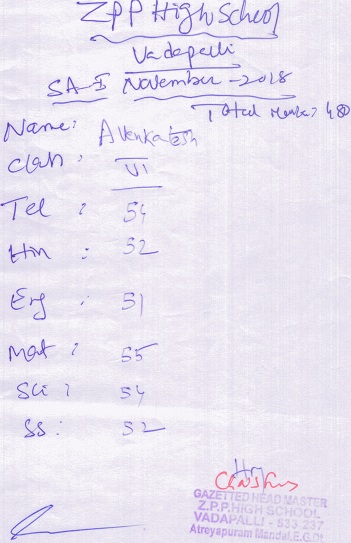 ZPP High School
Vadapalli
SA-I November - 2018
Total Marks: 480
Name: A Venkatesh
Class: VI
Tel : 54
Hin : 52
Eng : 51
Mat : 55
Sci : 54
SS : 52
GAZETTED HEAD MASTER
Z.P.P.HIGH SCHOOL
VADAPALLI - 533 237
Atreyapuram Mandal, E.G.Dt